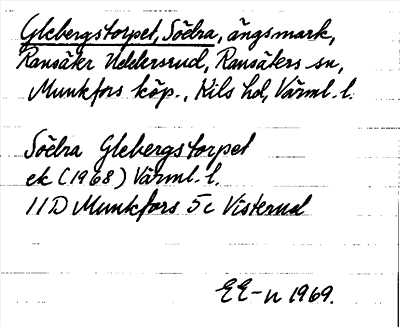 Glebergstorpet, Södra, ängsmark,
Ransäter Uddersrud, Ransäters sn,
Munkfors köp., Kils hd, Värml. l.
Södra Glebergstorpet
ek (1968) Värml. l.
11D Munkfors 5c Visterud
EE-n 1969.